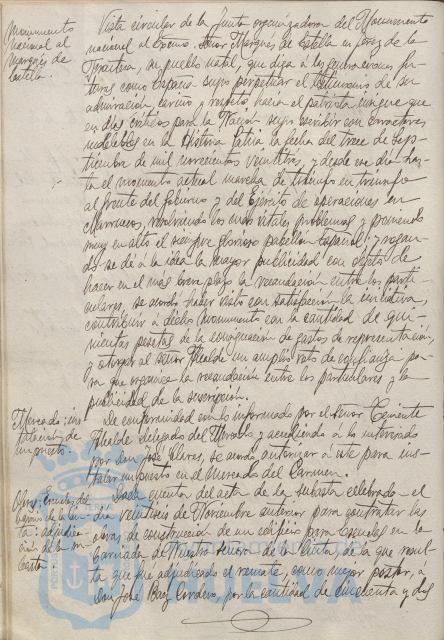 Monumento
nacional al
Marqués de
Estella.
Vista circular de la Junta organizadora del Monumento
nacional al Excmo. Señor Marqués de Estella en Jerez de la
Frontera, su pueblo natal, que diga a las generaciones fu-
turas como España supo perpetuar el testimonio de su
admiración, cariño y respeto, hacia el patriota insigne que
en días críticos para la Nación supo escribir con caracteres
indelebles en la Historia Patria la fecha del trece de Sep-
tiembre de mil novecientos veintitres, y desde ese día has-
ta el momento actual marcha de triunfo en triunfo
al frente del Gobierno y del Ejército de operaciones en
Marruecos, resolviendo los más vitales problemas y poniendo
muy en alto el siempre glorioso pabellón Español; y rogan-
do se dé a la idea la mayor publicidad con objeto de
hacer en el más breve plazo la recaudación entre los parti-
culares, se acordó haber visto con satisfacción la iniciativa,
contribuir á dicho monumento con la cantidad de qui-
nientas pesetas de la consignación de gastos de representación,
y otorgar al señor Alcalde un amplio voto de confianza pa-
ra que organice la recaudación entre los particulares y la
publicidad de la suscripción.
Mercado: ins-
talación de
un puesto.
De conformidad con lo informado por el Señor Teniente
Alcalde delegado del Mercado y accediendo á lo interesado
por don José Flores, se acordó autorizar a este para ins-
talar un puesto en el Mercado del Carmen.
Obras: Escuelas del
barrio de la Cin-
ta: adjudica-
ción de la su-
basta
Dada cuenta del acta de la subasta celebrada el
día veintiseis de Noviembre anterior para contratar las
obras de construcción de un edificio para Escuelas en la
barriada de Nuestra Señora de la Cinta, de la que resul-
ta que fué adjudicado el remate, como mejor postor, a
don José Báez Cordero, por la cantidad de cincuenta y dos
HUELVA